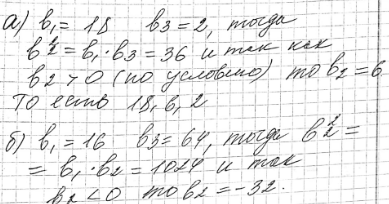 а) b₁ = 18 b₃ = 2, тогда
b₂² = b₁ · b₃ = 36 и так как
b₂ > 0 (по условию) то b₂ = 6
то есть 18, 6, 2
б) b₁ = 16 b₃ = 64, тогда b₂² =
= b₁ · b₂ = 1024 и так
b₂ < 0 то b₂ = -32.